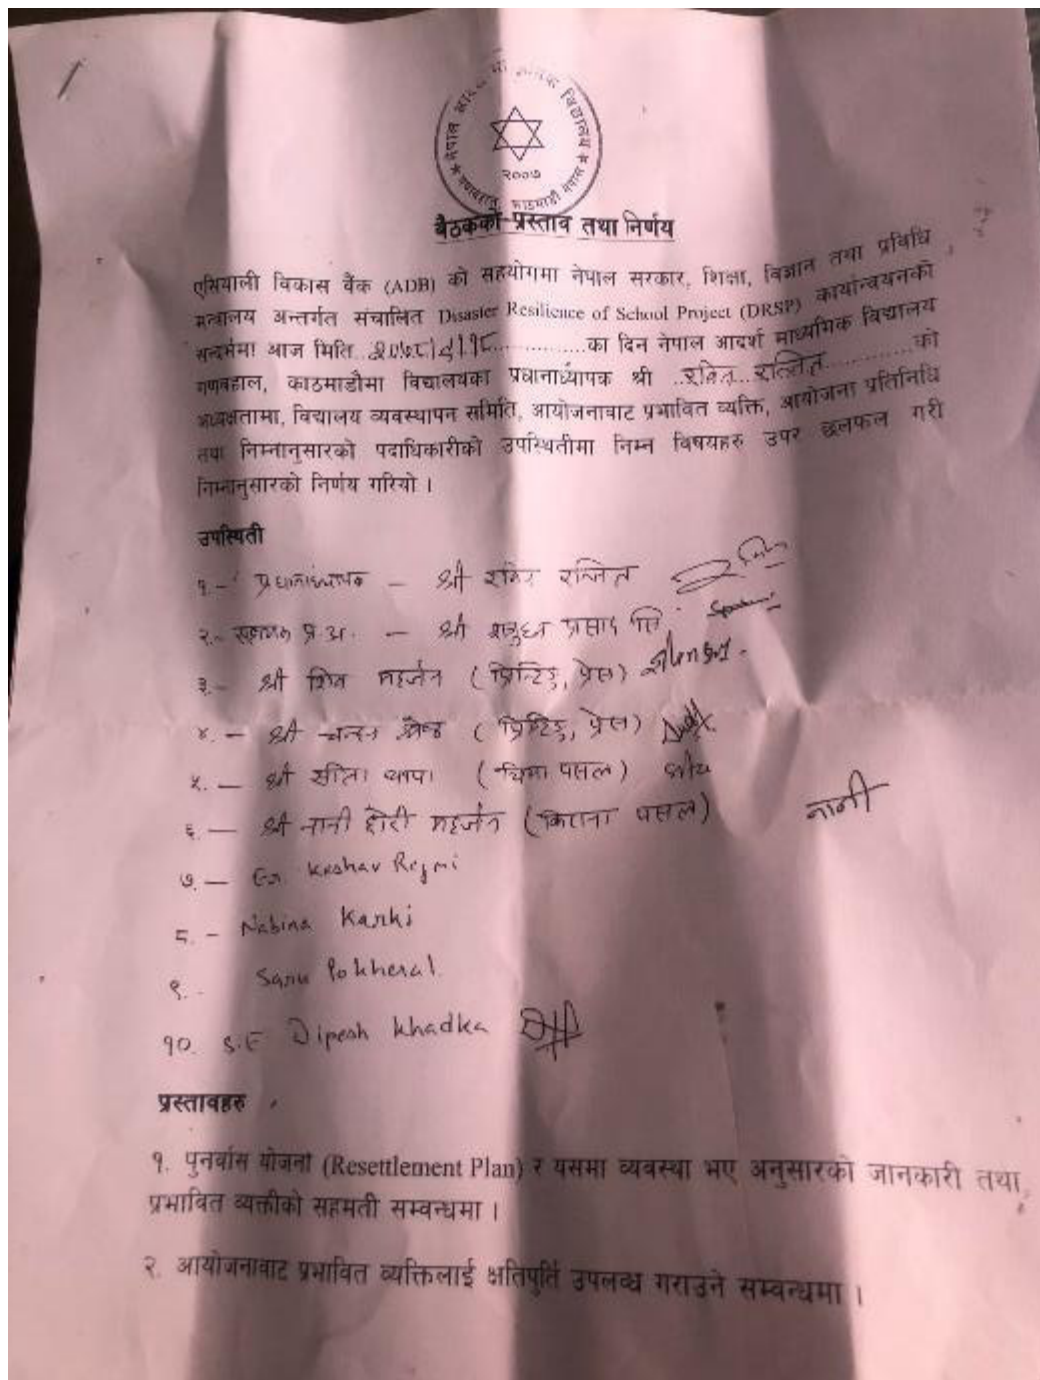 नेपाल आदर्श मा विद्यालय
२००७
गणवहाल, काठमाडौं नेपाल
बैठकको प्रस्ताव तथा निर्णय
एसियाली विकास बैंक (ADB) को सहयोगमा नेपाल सरकार, शिक्षा, विज्ञान तथा प्रविधि
मन्त्रालय अन्तर्गत संचालित Disaster Resilience of School Project (DRSP) कार्यान्वयनको
सन्दर्भमा आज मिति ............ का दिन नेपाल आदर्श माध्यमिक विद्यालय
गणवहाल, काठमाडौमा विद्यालयका प्रधानाध्यापक श्री ..रविन..रन्जित............को
अध्यक्षतामा, विद्यालय व्यवस्थापन समिति, आयोजनावाट प्रभावित व्यक्ति, आयोजना प्रतिनिधि
तथा निम्नानुसारको पदाधिकारीको उपस्थितीमा निम्न विषयहरु उपर छलफल गरी
निम्नानुसारको निर्णय गरियो ।
उपस्थिती
१.- प्रधानाध्यापक – श्री रविन रन्जित
२.- प्र.अ. – श्री शत्रुधन प्रसाद
३.- श्री शिव महर्जन (प्रिन्टिङ्ग, प्रेस)
४.- श्री चन्दन श्रेष्ठ (प्रिन्टिङ्ग, प्रेस)
५.— श्री सीता थापा (चिया पसल)
६— श्री नानी छोरी महर्जन (किराना पसल) नानी
७.— Er. Keshav Regmi
८.- Nabina Karki
९.- Sanu Pokheral
१०. S.E Dipesh Khadka
प्रस्तावहरु
१. पुनर्वास योजना (Resettlement Plan) र यसमा व्यवस्था भए अनुसारको जानकारी तथा
प्रभावित व्यक्तीको सहमती सम्वन्धमा ।
२. आयोजनावाट प्रभावित व्यक्तिलाई क्षतिपुर्ति उपलब्ध गराउने सम्वन्धमा ।